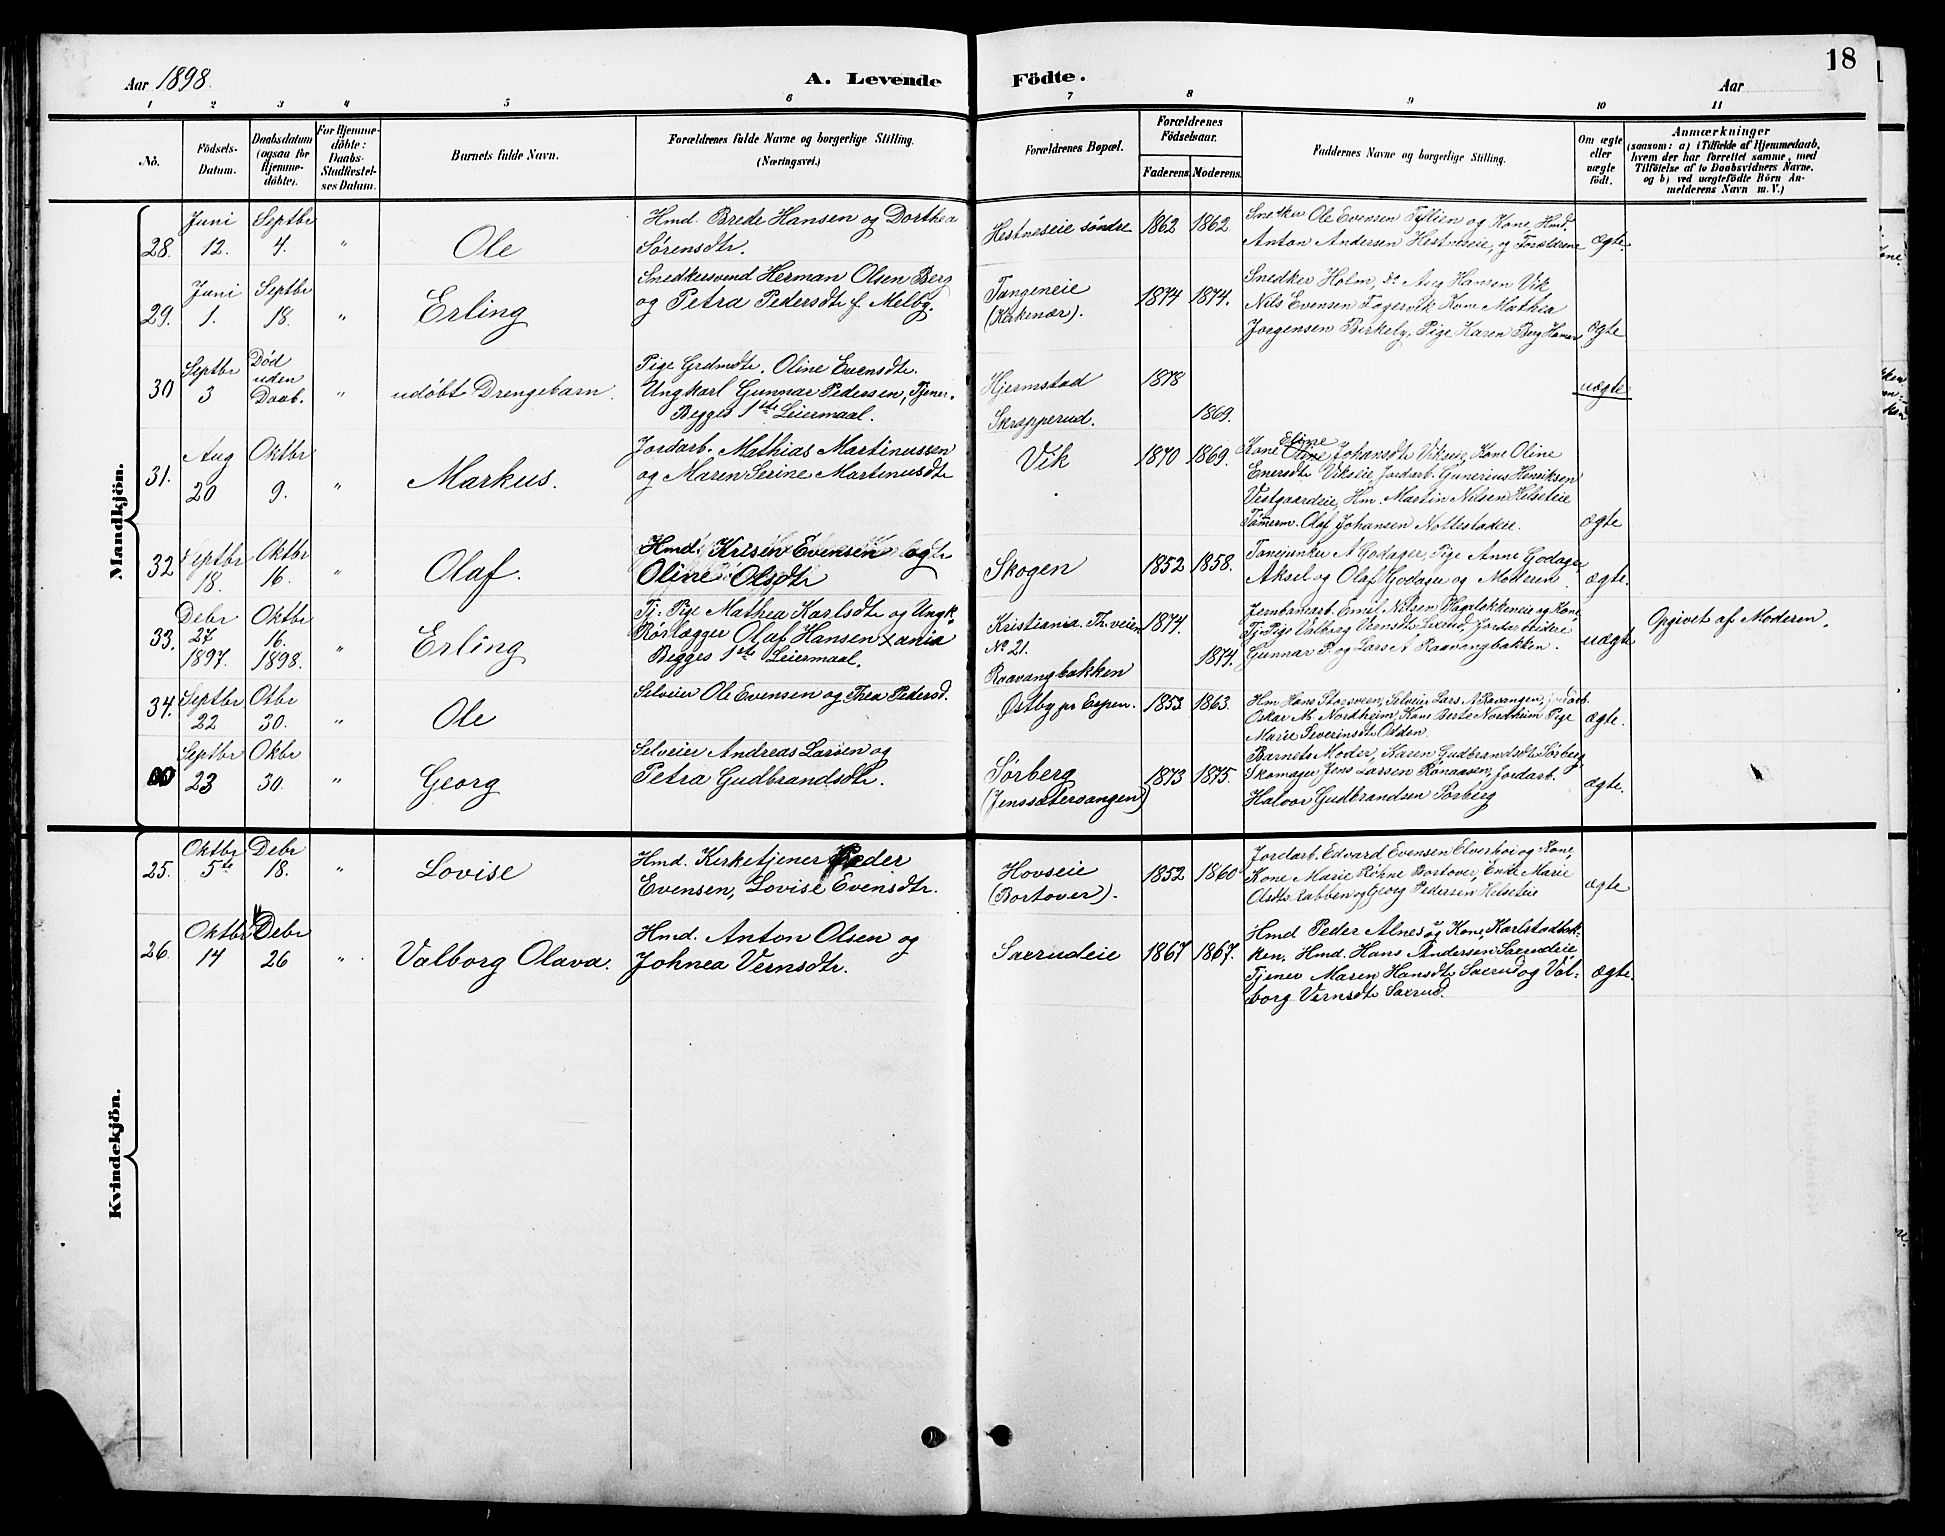 18
Aar 1898.
A. Levende
Födte.
Aar
1 2 3 4 5 6 7 8 9 10 11
No.
Födsels-
Datum.
Daabsdatum
(ogsaa for
Hjemme-
döbte).
For Hjemme-
döbte:
Daabs-
Stadfestel-
ses Datum.
Barnets fulde Navn.
Forældrenes fulde Navne og borgerlige Stilling.
(Næringsvei.)
Forældrenes Bopæl.
Forældrenes
Födselsaar.
Faderens. Moderens.
Faddernes Navne og borgerlige Stilling.
Om ægte
eller
uægte
födt.
Anmærkninger
(saasom: a) i Tilfælde af Hjemmedaab,
hvem der har forrettet samme, med
Tilföielse af to Daabsvidners Navne.
og b) ved uægtefödte Börn An-
melderens Navn m. V.)
Mandkjön.
28.
Juni
12.
Septbr
4.
"
Ole
Hmd. Brede Hansen og Dorthea
Sørensdtr.
Hestneseie søndre
1862 1862
Snedker Ole Evensen og Kone, Hmd.
Anton Andersen Hestneseie, og Forældrene
ægte.
29.
Juni
1.
Septbr
18.
"
Erling
Snedkersvend Herman Olsen Berg
og Petra Pedersdtr f. Melby.
Tangeneie
(Kirkenær).
1874 1874.
Snedker Holm, do Aug Hansen Vik
Nils Evensen Fagervik Kone Mathea
Jorgensen Birkely, Pige Karen Berg Hamar
ægte
30
Septbr
3
Død
uden
Daab.
"
udøbt Drengebarn.
Pige Grdmdtr. Oline Evensdtr.
Ungkarl Gunnar Pedersen, Tjener.
Begges 1ste Leiermaal.
Hjermstad
Skræpperud.
1878
1869.
uægte
31.
Aug
20
Oktbr
9.
"
Markus.
Jordarb. Mathias Martinussen
og Maren Serine Martinusdtr
Vik
1870 1869.
Kone Eline Johansdtr Vikeie, Kone Oline
Enersdtr Vikeie Jordarb. Gunerius Henriksen
Vestgaardeie, Hm. Martin Nilsen Helseteie
Tømmerm. Olaf Johansen Nottestadeie.
ægte
32
Septbr
18.
Oktbr
16.
"
Olaf.
Hmd. Krisen Evensen og
Oline Olsdtr
Skogen
1852 1858.
N Godager, Pige Anne Godager
Aksel og Olaf Godager og Moderen
ægte.
33.
Debr
27
1897.
Oktbr
16.
1898.
"
Erling
Tj. Pige Mathea Karlsdtr og Ungk.
Rørlægger Olaf Hansen Xania
Begges 1ste Leiermaal.
Kristiania. Th.veien
No 21.
Raavangbakken
1874.
1874.
Jernbanearb. Emil Nilsen Hagelokkeneie og Kone,
Tj. Pige Valborg Vernsdtr Saxrud, Jordarbeidere
Gunnar P. og Lars A Raavangbakken.
uægte
Opgivet af Moderen.
34.
Septbr
22
Otbr
30.
"
Ole
Selveier Ole Evensen og Thea Pedersd.
Østby pr Espen.
1853 1863.
Hm Hans Storsveen, Selveier Lars A Ravangen, Jordarb.
Oskar M. Nordheim, Kone Berte Nordheim Pige
Marie Severinsdtr Odden.
ægte.
Septbr
23
Oktbr
30.
"
Georg
Selveier Andreas Larsen og
Petra Gudbrandsdtr.
Sørberg
(Jenssætervangen)
1873 1875.
Barnets Moder, Karen Gudbrandsdtr Sørberg
Skomager Jens Larsen Ronaasen, Jordarb.
Halvor Gudbrandsen Sørberg
ægte.
Kvindekjön.
25.
Oktbr
5te
Debr
18.
"
Lovise
Hmd. Kirketjener Peder
Evensen, Lovise Evensdtr.
Hovseie
(Bortover).
1852 1860
Jordarb. Edvard Evensen Elverhoi og Kone,
Kone Marie Røhne Bortover, Enke Marie
Olsdtr Labben og Georg Pedersen Helseteie
ægte
26.
Oktbr
14
Debr
26
"
Valborg Olava.
Hmd. Anton Olsen og
Johnea Vernsdtr.
Saxrudeie
1867 1867.
Hmd Peder Alnes og Kone, Karlstadbak-
ken, Hmd. Hans Andersen Saxrudeie,
Tjener Maren Hansdtr Saxrud og Val-
borg Vernsdtr Saxrud.
ægte.